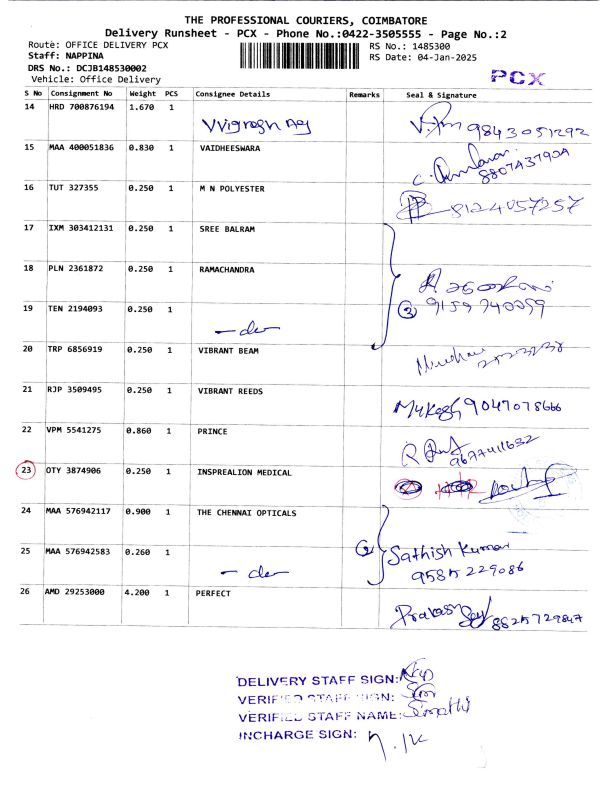 THE PROFESSIONAL COURIERS, COIMBATORE
Delivery Runsheet - PCX - Phone No.:0422-3505555 - Page No.:2
Route: OFFICE DELIVERY PCX RS No.: 1485300
Staff: NAPPINA RS Date: 04-Jan-2025
DRS No.: DCJB148530002
Vehicle: Office Delivery
PCX
S No Consignment No Weight PCS Consignee Details Remarks Seal & Signature
14 HRD 700876194 1.670 1 9843051292
15 MAA 400051836 0.830 1 VAIDHEESWARA
16 TUT 327355 0.250 1 M N POLYESTER 8124057257
17 IXM 303412131 0.250 1 SREE BALRAM
18 PLN 2361872 0.250 1 RAMACHANDRA
19 TEN 2194093 0.250 1 3 9159740059
20 TRP 6856919 0.250 1 VIBRANT BEAM
21 RJP 3509495 0.250 1 VIBRANT REEDS Mukesh 9047078666
22 VPM 5541275 0.860 1 PRINCE 9677411632
23 OTY 3874906 0.250 1 INSPREALION MEDICAL
24 MAA 576942117 0.900 1 THE CHENNAI OPTICALS
25 MAA 576942583 0.260 1 2 Sathish Kumar
9585229086
26 AMD 29253000 4.200 1 PERFECT Prakash 8825729847
DELIVERY STAFF SIGN:
VERIFIED STAFF SIGN:
VERIFIED STAFF NAME:
INCHARGE SIGN: